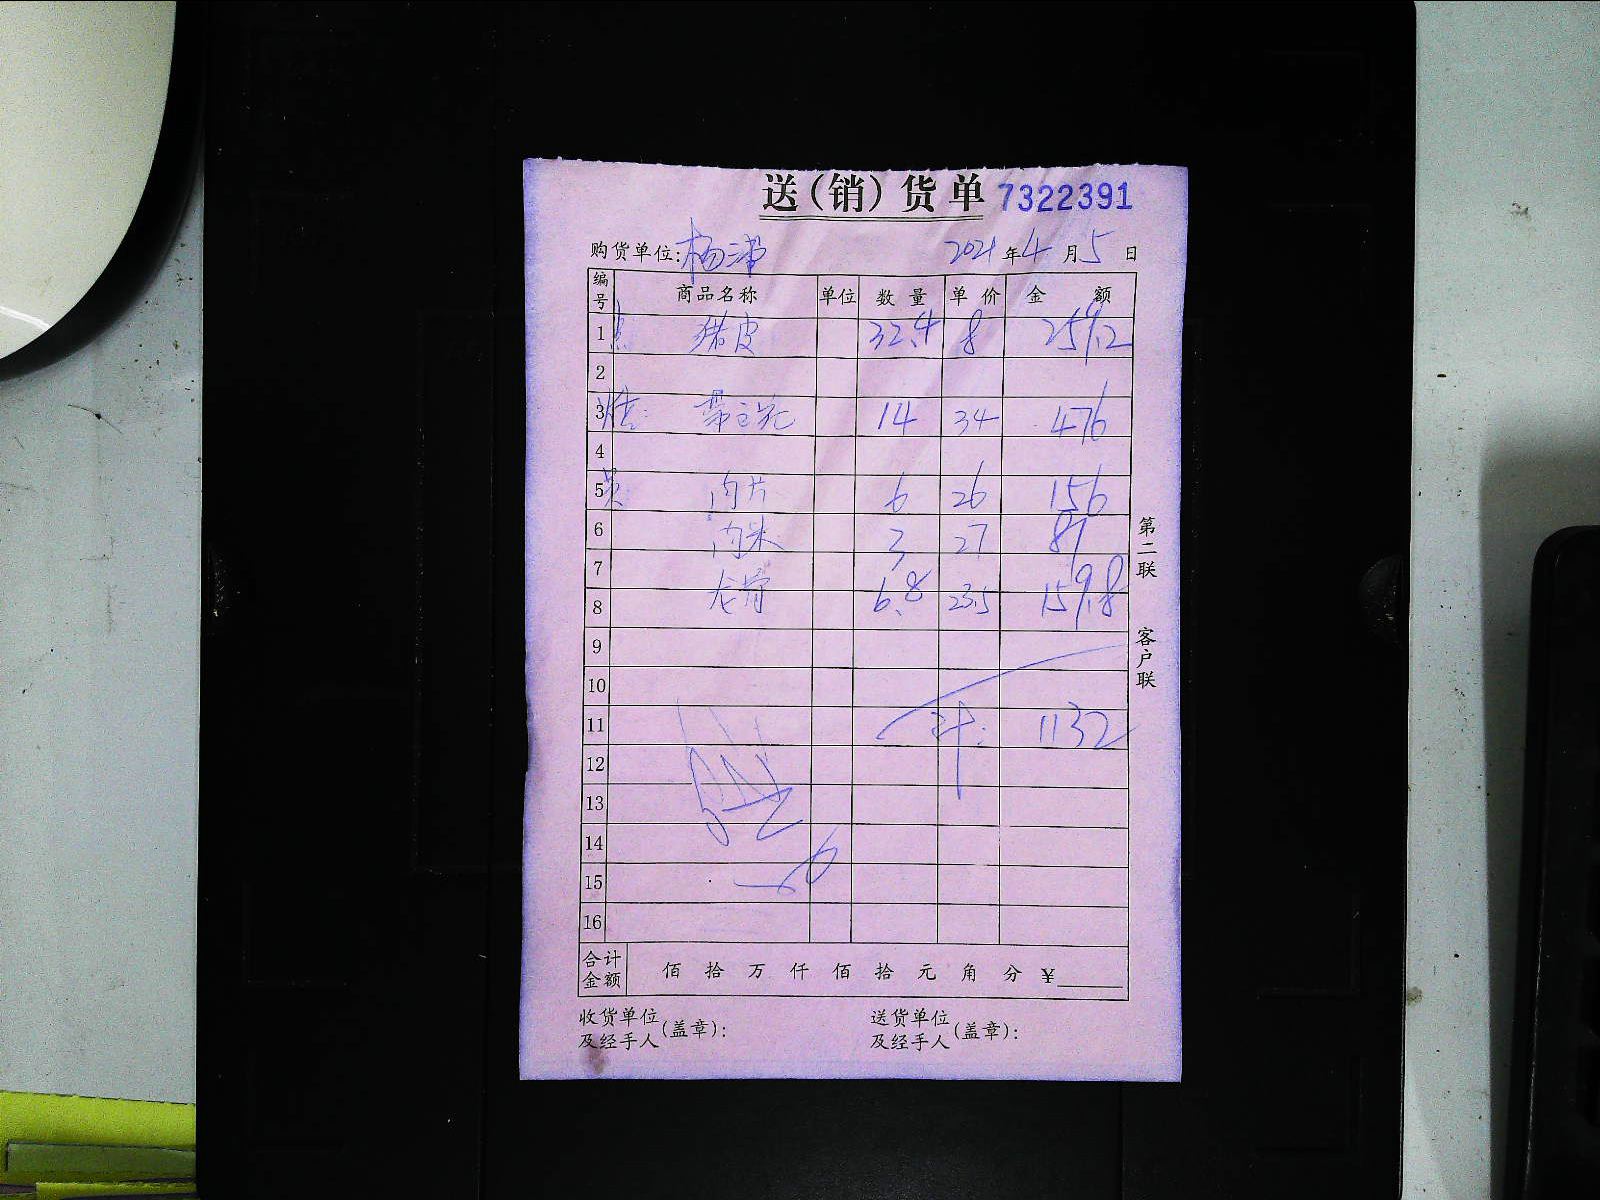 送(销)货单 7322391
购货单位: 杨浦 2021年4月5日
编号 商品名称 单位 数量 单价 金额
1 猪皮 32.4 8 259.2
2
3 14 34 476
4
5 肉片 6 26 156
6 肉米 3 27 81
7 龙骨 6.8 23.5 159.8
8
9
10
11 计: 1132
12
13
14
15
16
合计金额 佰拾万仟佰拾元角分 ¥
收货单位及经手人(盖章): 送货单位及经手人(盖章):
第二联 客户联